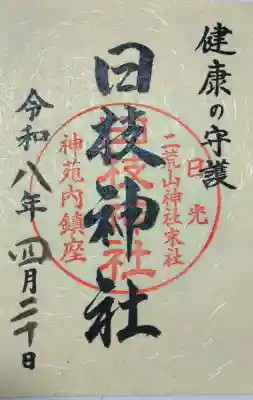 健康の守護
日枝神社
令和八年四月二十日
日光
二荒山神社末社
日枝神社
神苑内鎮座